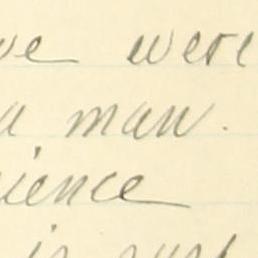 ve were
a man.
ience
is